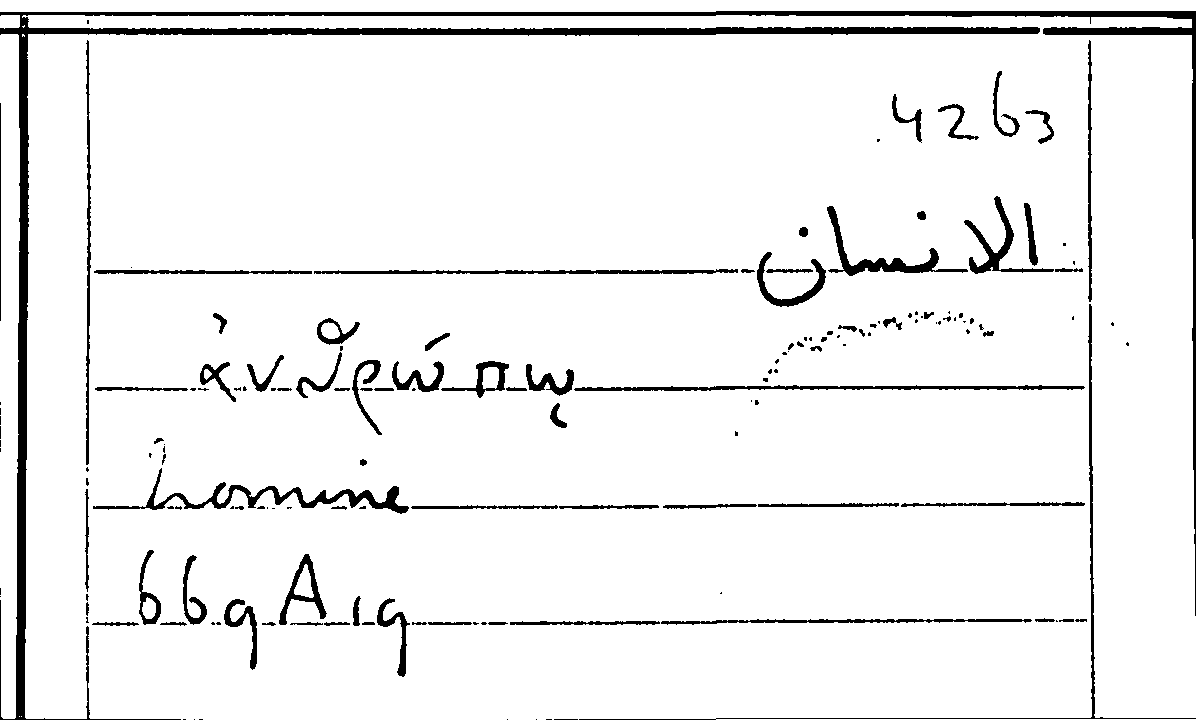 4263
الانسان
ἀνθρώπῳ
homine
669A19